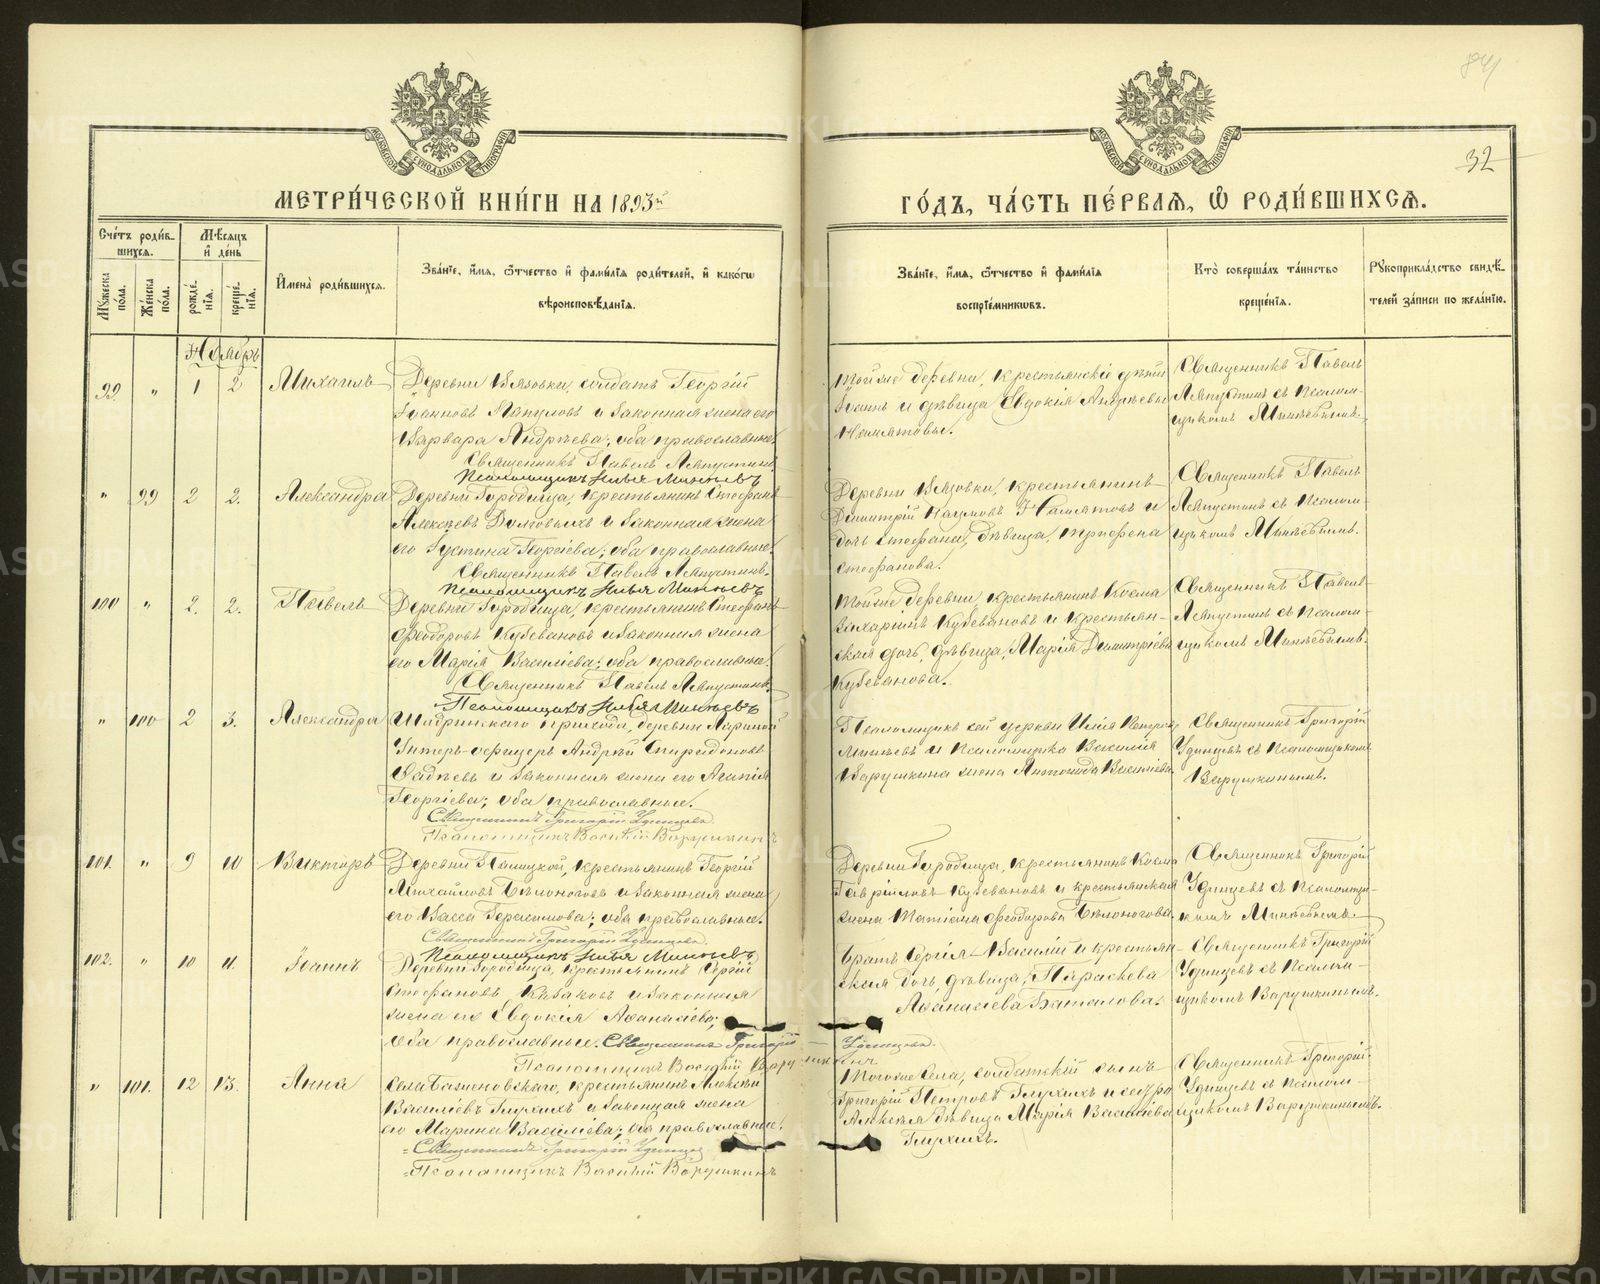 84
32
МЕТРИ́ЧЕСКОЙ КНИ́ГИ НА 1893й
ГО́ДЪ, ЧА́СТЬ ПЕ́РВАѦ, Ѡ҆ РОДИ́ВШИХСѦ.
МОСКОВСКОЙ СѴНОДАЛЬНОЙ ТИПОГРАФІИ
МОСКОВСКОЙ СѴНОДАЛЬНОЙ ТИПОГРАФІИ
Сче́тъ роди́в-
шихсѧ.
Мꙋ́жеска по́ла.
Же́нска по́ла.
Мѣ́сѧцъ
и҆ де́нь
рожде́-нїѧ.
креще́-нїѧ.
И҆мена̀ роди́вшихсѧ.
Зва́нїе, и҆́мѧ, ѻ҆́тчество и҆ фами́лїѧ роди́телей, и҆ како́гѡ
вѣроисповѣ́данїѧ.
Зва́нїе, и҆́мѧ, ѻ҆́тчество и҆ фами́лїѧ
воспрїе́мникѡвъ.
Кто̀ соверша́лъ та́инство
креще́нїѧ.
Рꙋкоприкла́дство свидѣ́-
телей за́писи по жела́нїю.
Ноябрь
99. " 1 2 Михаилъ
Деревни Вязовки, солдатъ Георгій
Іоанновъ и законная жена его
Варвара Андреева; оба православные.
Священникъ Павелъ Ляпустинъ.
Псаломщикъ Илья Минѣевъ
Той же деревни, крестьянскіе дѣти
Іоаннъ и дѣвица Евдокія Андреевы
Намятовы.
Священникъ Павелъ
Ляпустинъ съ псалом-
щикомъ Минѣевымъ.
" 99 2 2. Александра
Деревни Городища, крестьянинъ Стефанъ
Алексѣевъ Долговыхъ и законная жена
его Іустина Георгіева; оба православные.
Священникъ Павелъ Ляпустинъ.
Псаломщикъ Илья Минѣевъ
Деревни Вязовки, крестьянинъ
Димитрій Наумовъ Намятовъ и
дочь Стефана, дѣвица Трифена
Стефанова.
Священникъ Павелъ
Ляпустинъ съ псалом-
щикомъ Минѣевымъ.
100 " 2. 2. Павелъ
Деревни Городища, крестьянинъ Стефанъ
Ѳеодоровъ Кубевановъ и законная жена
его Марія Василіева; оба православные.
Священникъ Павелъ Ляпустинъ.
Псаломщикъ Илья Минѣевъ
Той же деревни, крестьянинъ Косма
Захаринъ Кубевановъ и крестьян-
ская дочь, дѣвица, Марія Димитріева
Кубеванова.
Священникъ Павелъ
Ляпустинъ съ псалом-
щикомъ Минѣевымъ.
" 100 2 3. Александра
Шадринскаго прихода, деревни
Унтеръ-офицеръ Андрей Спиридоновъ
Фадѣевъ и законная жена его Агапія
Георгіева; оба православные.
Священникъ Григорій Удинцевъ.
Псаломщикъ Василій Варушкинъ
Псаломщикъ сей церкви Илія Петровъ
Минѣевъ и псаломщика Василія
Варушкина жена Антонида Василіева.
Священникъ Григорій
Удинцевъ съ псаломщикомъ
Варушкинымъ.
101. " 9 10 Викторъ
Деревни крестьянинъ Георгій
Михайловъ Бѣлоноговъ и законная жена
его Васса Герасимова; оба православные.
Священникъ Григорій Удинцевъ.
Псаломщикъ Илья Минѣевъ
Деревни Городища, крестьянинъ Косма
Гавріиловъ Кубевановъ и крестьянская
жена Татіана Ѳеодорова Бѣлоногова.
Священникъ Григорій
Удинцевъ съ псаломщи-
комъ Минѣевымъ.
102. " 10 11. Іоаннъ
Деревни Городища, крестьянинъ Сергій
Стефановъ Казаковъ и законная
жена его Евдокія Аѳанасіева;
оба православные. Священникъ Григорій Удинцевъ.
Псаломщикъ Василій Варушкинъ
Братъ Сергія Василій и крестьян-
ская дочь, дѣвица, Параскева
Аѳанасіева Баталова.
Священникъ Григорій
Удинцевъ съ псалом-
щикомъ Варушкинымъ.
" 101. 12 13. Анна
Села Баженовскаго, крестьянинъ Алексѣй
Василіевъ Глухихъ и законная жена
его Марина Василіева; оба православные.
Священникъ Григорій Удинцевъ
Псаломщикъ Василій Варушкинъ
Того же села, солдатскій сынъ
Григорій Петровъ Глухихъ и сестра
Алексѣя дѣвица Марія Василіева
Глухихъ.
Священникъ Григорій
Удинцевъ съ псалом-
щикомъ Варушкинымъ.
METRIKI.GASO-URAL.RU